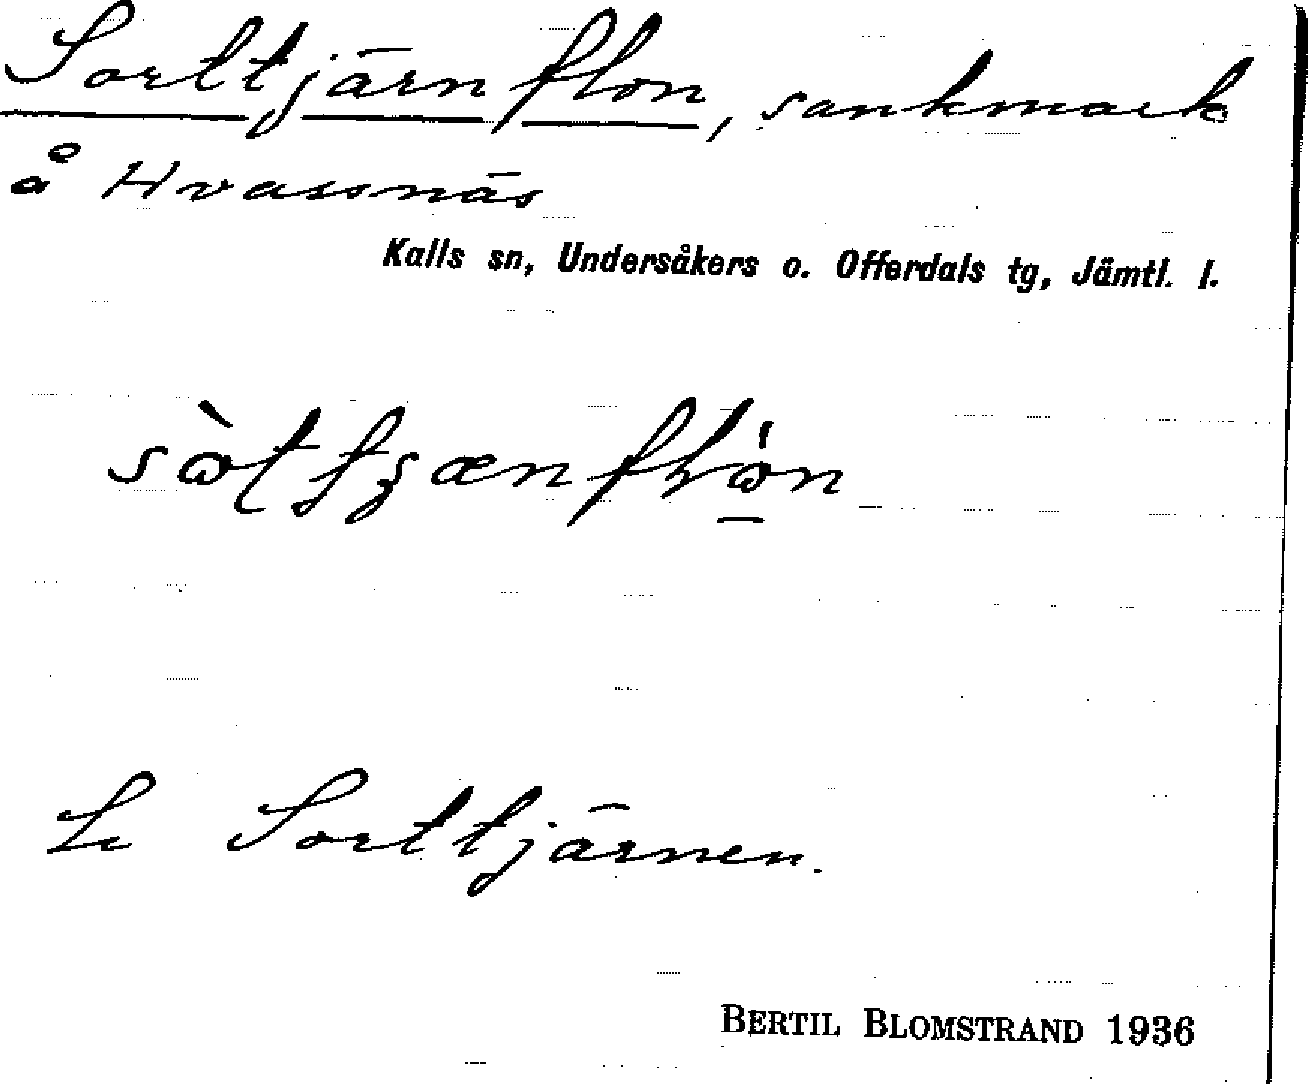 Sorttjärnflon, sankmark
å Hvassnäs
Kalls sn, Undersåkers o. Offerdals tg, Jämtl. l.
Se Sorttjärnen.
BERTIL BLOMSTRAND 1936